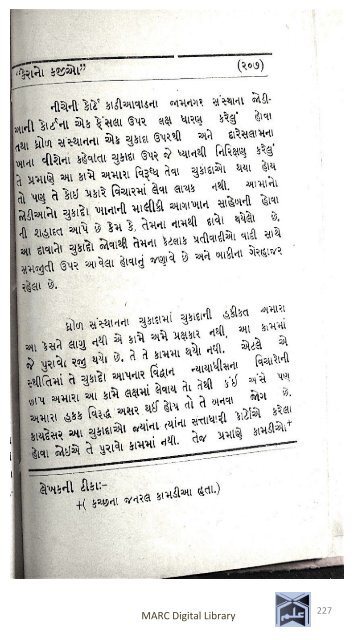 "કેરાનો કજીઓ"
(૨૦૭)
નીચેની કોર્ટે કાઠીઆવાડના જામનગર સંસ્થાના જોડી-
આની કોર્ટના એક ફેંસલા ઉપર લક્ષ ધારણ કરેલું હોવા
તથા ધ્રોળ સંસ્થાનના એક ચુકાદા ઉપરથી અને દારેસલામના
ખાના વીરોના કહેવાતા ચુકાદા ઉપર જે ધ્યાનથી નિરિક્ષણ કરેલું
તે પ્રમાણે આ કામે અમારા વિરૂધ તેવા ચુકાદાઓ થયા હોય
તો પણ તે કોઇ પ્રકારે વિચારમાં લેવા લાયક નથી. આમાંનો
જોડીઆનો ચુકાદો ખાનાની માલીકી આગાખાન સાહેબની હોવા
ની શાહદત આપે છે કેમ કે, તેમના નામથી દાવો થયેલો છે.
આ દાવાનો ચુકાદો જોવાથી તેમના કેટલાક પ્રતીવાદીઓ વાદી સાથે
સમજુતી ઉપર આવેલા હોવાનું જણાવે છે અને બાકીના ગેરહાજર
રહેલા છે.
ધ્રોળ સંસ્થાનના ચુકાદામાં ચુકાદાની હકીકત અમારા
આ કેસને લાગુ નથી એ કામે અમે પ્રક્ષકાર નથી, આ કામમાં
જે પુરાવો રજી થયો છે. તે તે કામમા થયો નથી. એટલે એ
સ્થીતિમાં તે ચુકાદો આપનાર વિદ્વાન ન્યાયાધીસના વિચારોની
છાપ અમારા આ કામે લક્ષમાં લેવાય તો તેથી કંઇ અંસે પણ
અમારા હકક વિરૂદ્ધ અસર થઈ હોય તો તે બનવા જોગ છે.
કાયદેસર આ ચુકાદાઓ જ્યાંના ત્યાંના સત્તાધારી કોર્ટોએ કરેલા
હોવા જોઇએ તે પુરાવો કામમાં નથી. તેજ પ્રમાણે કામડીઓ+
લેખકની ટીકાઃ-
+( કચ્છના જનરલ કામડીઆ હતા.)
MARC Digital Library
علم
227